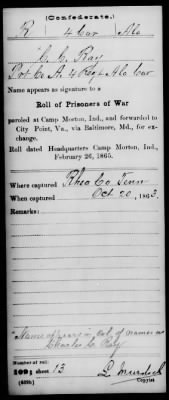 (Confederate.)
R 4 Cav Ala
C. C. Ray
Pvt Co A, 4 Reg't Ala Cav
Name appears as signature to a
Roll of Prisoners of War
paroled at Camp Morton, Ind., and forwarded to
City Point, Va., via Baltimore, Md., for ex-
change.
Roll dated Headquarters Camp Morton, Ind.,
February 26, 1865.
Where captured Rhea Co, Tenn
When captured Oct 20, 1863.
Remarks:
Name appears in col. of names as
Charles C. Ray
Number of roll:
109; sheet 13
L Murdock
(639b) Copyist.